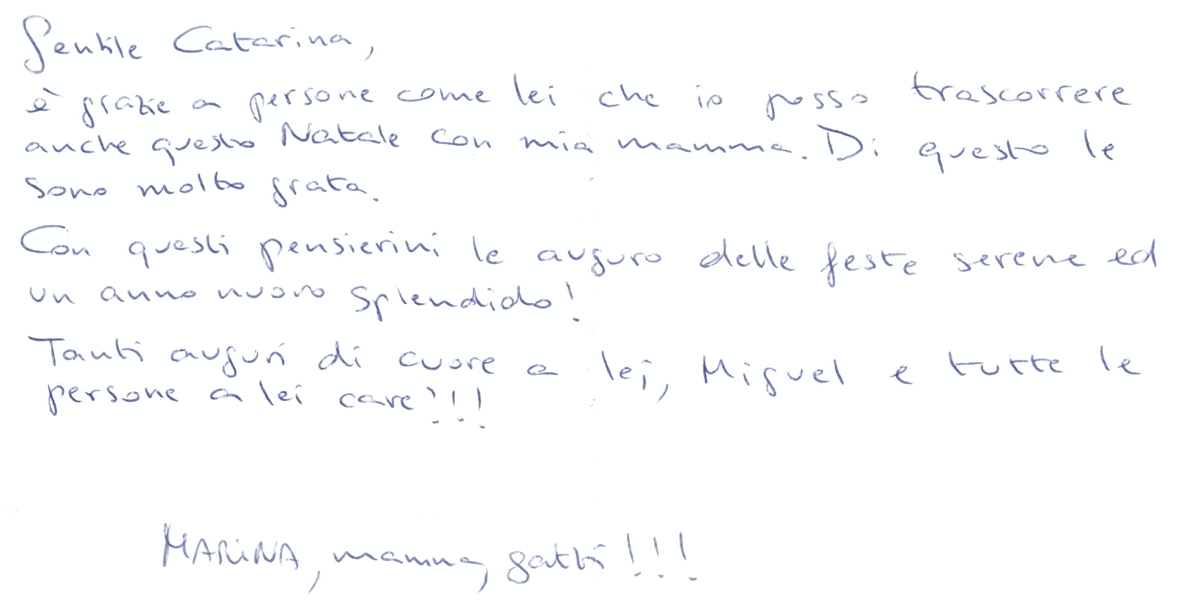 Gentile Catarina,
è grazie a persone come lei che io posso trascorrere
anche questo Natale con mia mamma. Di questo le
sono molto grata.
Con questi pensierini le auguro delle feste serene ed
un anno nuovo splendido!
Tanti auguri di cuore a lei, Miguel e tutte le
persone a lei care!!!
MARINA, mamma, gatti!!!